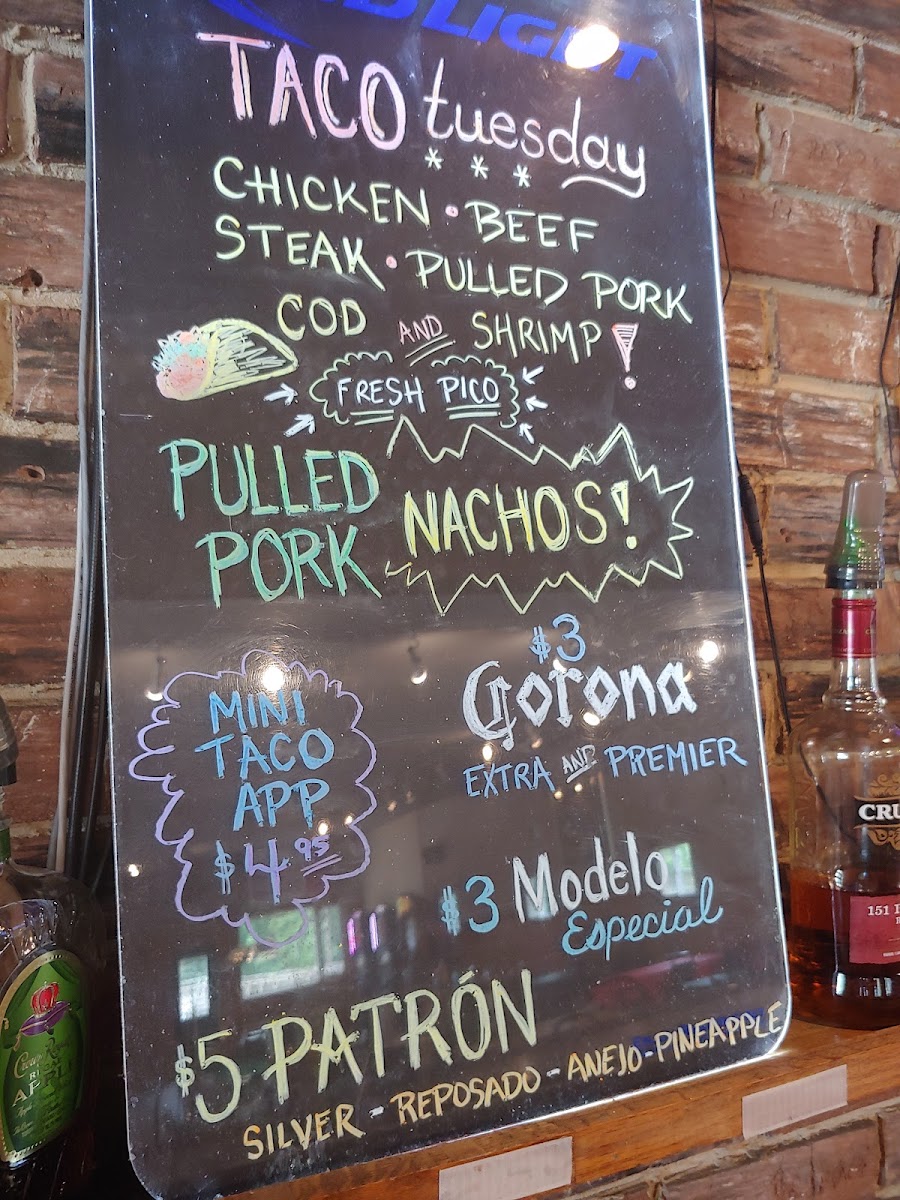 LIGHT
TACO tuesday
* * *
CHICKEN • BEEF
STEAK • PULLED PORK
COD AND SHRIMP!
FRESH PICO
PULLED
PORK
NACHOS!
MINI
TACO
APP
$4.95
$3
Corona
EXTRA AND PREMIER
$3 Modelo
Especial
$5 PATRÓN
SILVER - REPOSADO - ANEJO - PINEAPPLE
CRU
151